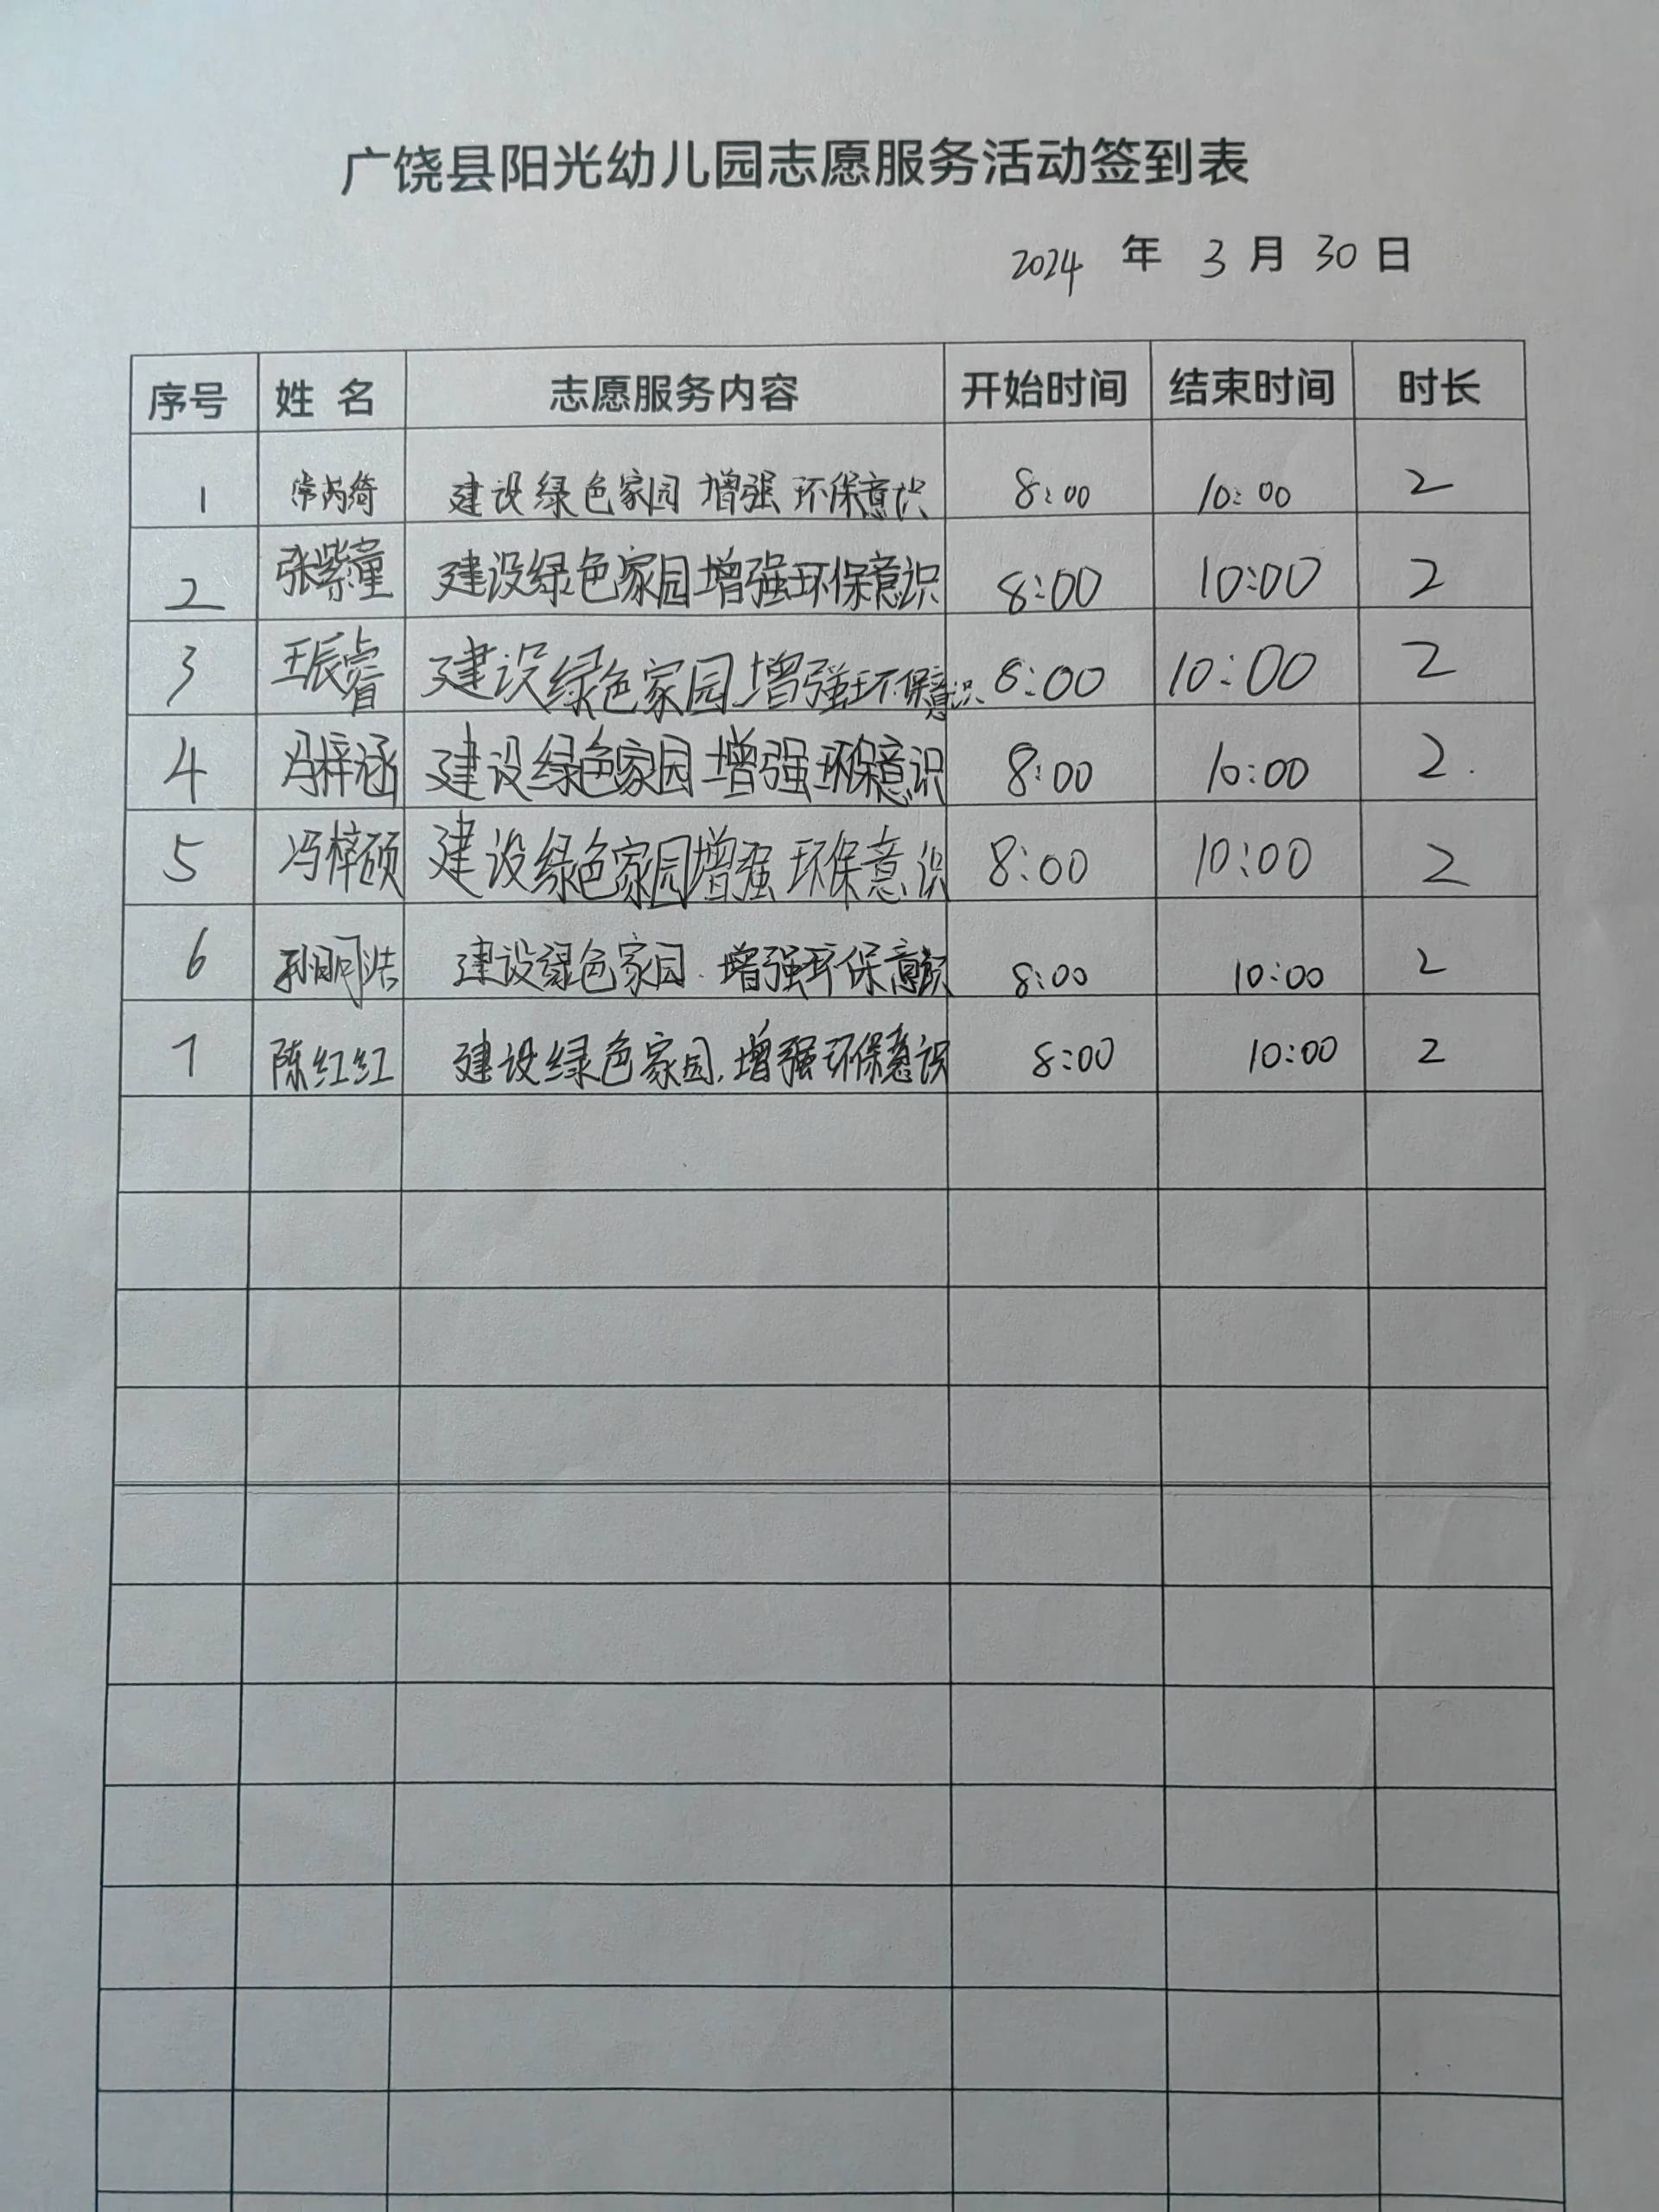 广饶县阳光幼儿园志愿服务活动签到表
2024 年 3 月 30 日
序号 姓 名 志愿服务内容 开始时间 结束时间 时长
1 建设绿色家园 增强环保意识 8:00 10:00 2
2 张紫童 建设绿色家园增强环保意识 8:00 10:00 2
3 王辰睿 建设绿色家园增强环保意识 8:00 10:00 2
4 冯梓涵 建设绿色家园增强环保意识 8:00 10:00 2.
5 冯梓硕 建设绿色家园增强环保意识 8:00 10:00 2
6 建设绿色家园.增强环保意识 8:00 10:00 2
7 陈红红 建设绿色家园,增强环保意识 8:00 10:00 2